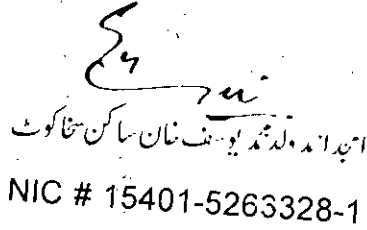 امجد احمد ولد محمد یوسف خان ساکن سخاکوٹ
NIC # 15401-5263328-1